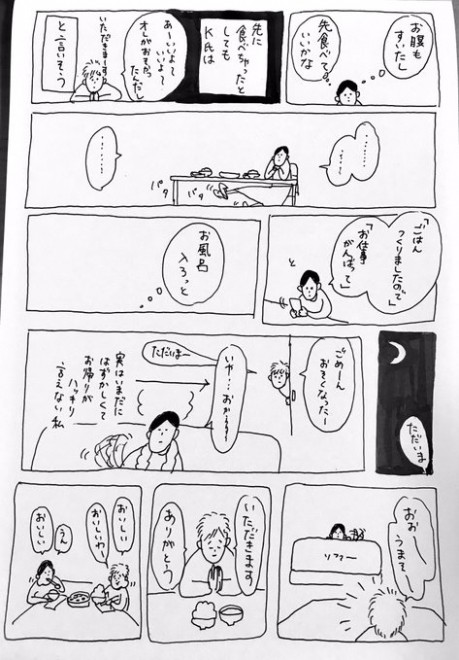 お腹も
すいたし
先食べてて
いいかな
先に
食べちゃったと
しても
K氏は
あーいいよて
いいよー
オレがおそかっ
たんだし
いただきまーす
と言いそう
………
……
………
パタ
パタ
「ごはん
つくりましたので」
「お仕事
がんばって」
と
お風呂
入ろっと
ただいま
ごめーん
おそくなったー
ただいまー
いや…おかえり
実はいまだに
はずかしくて
お帰りが
ハッキリ
言えない私
おお
うまそー
ソファー
いただきます
ありがとう
おいしい
おいしいわー
うん
おいしい